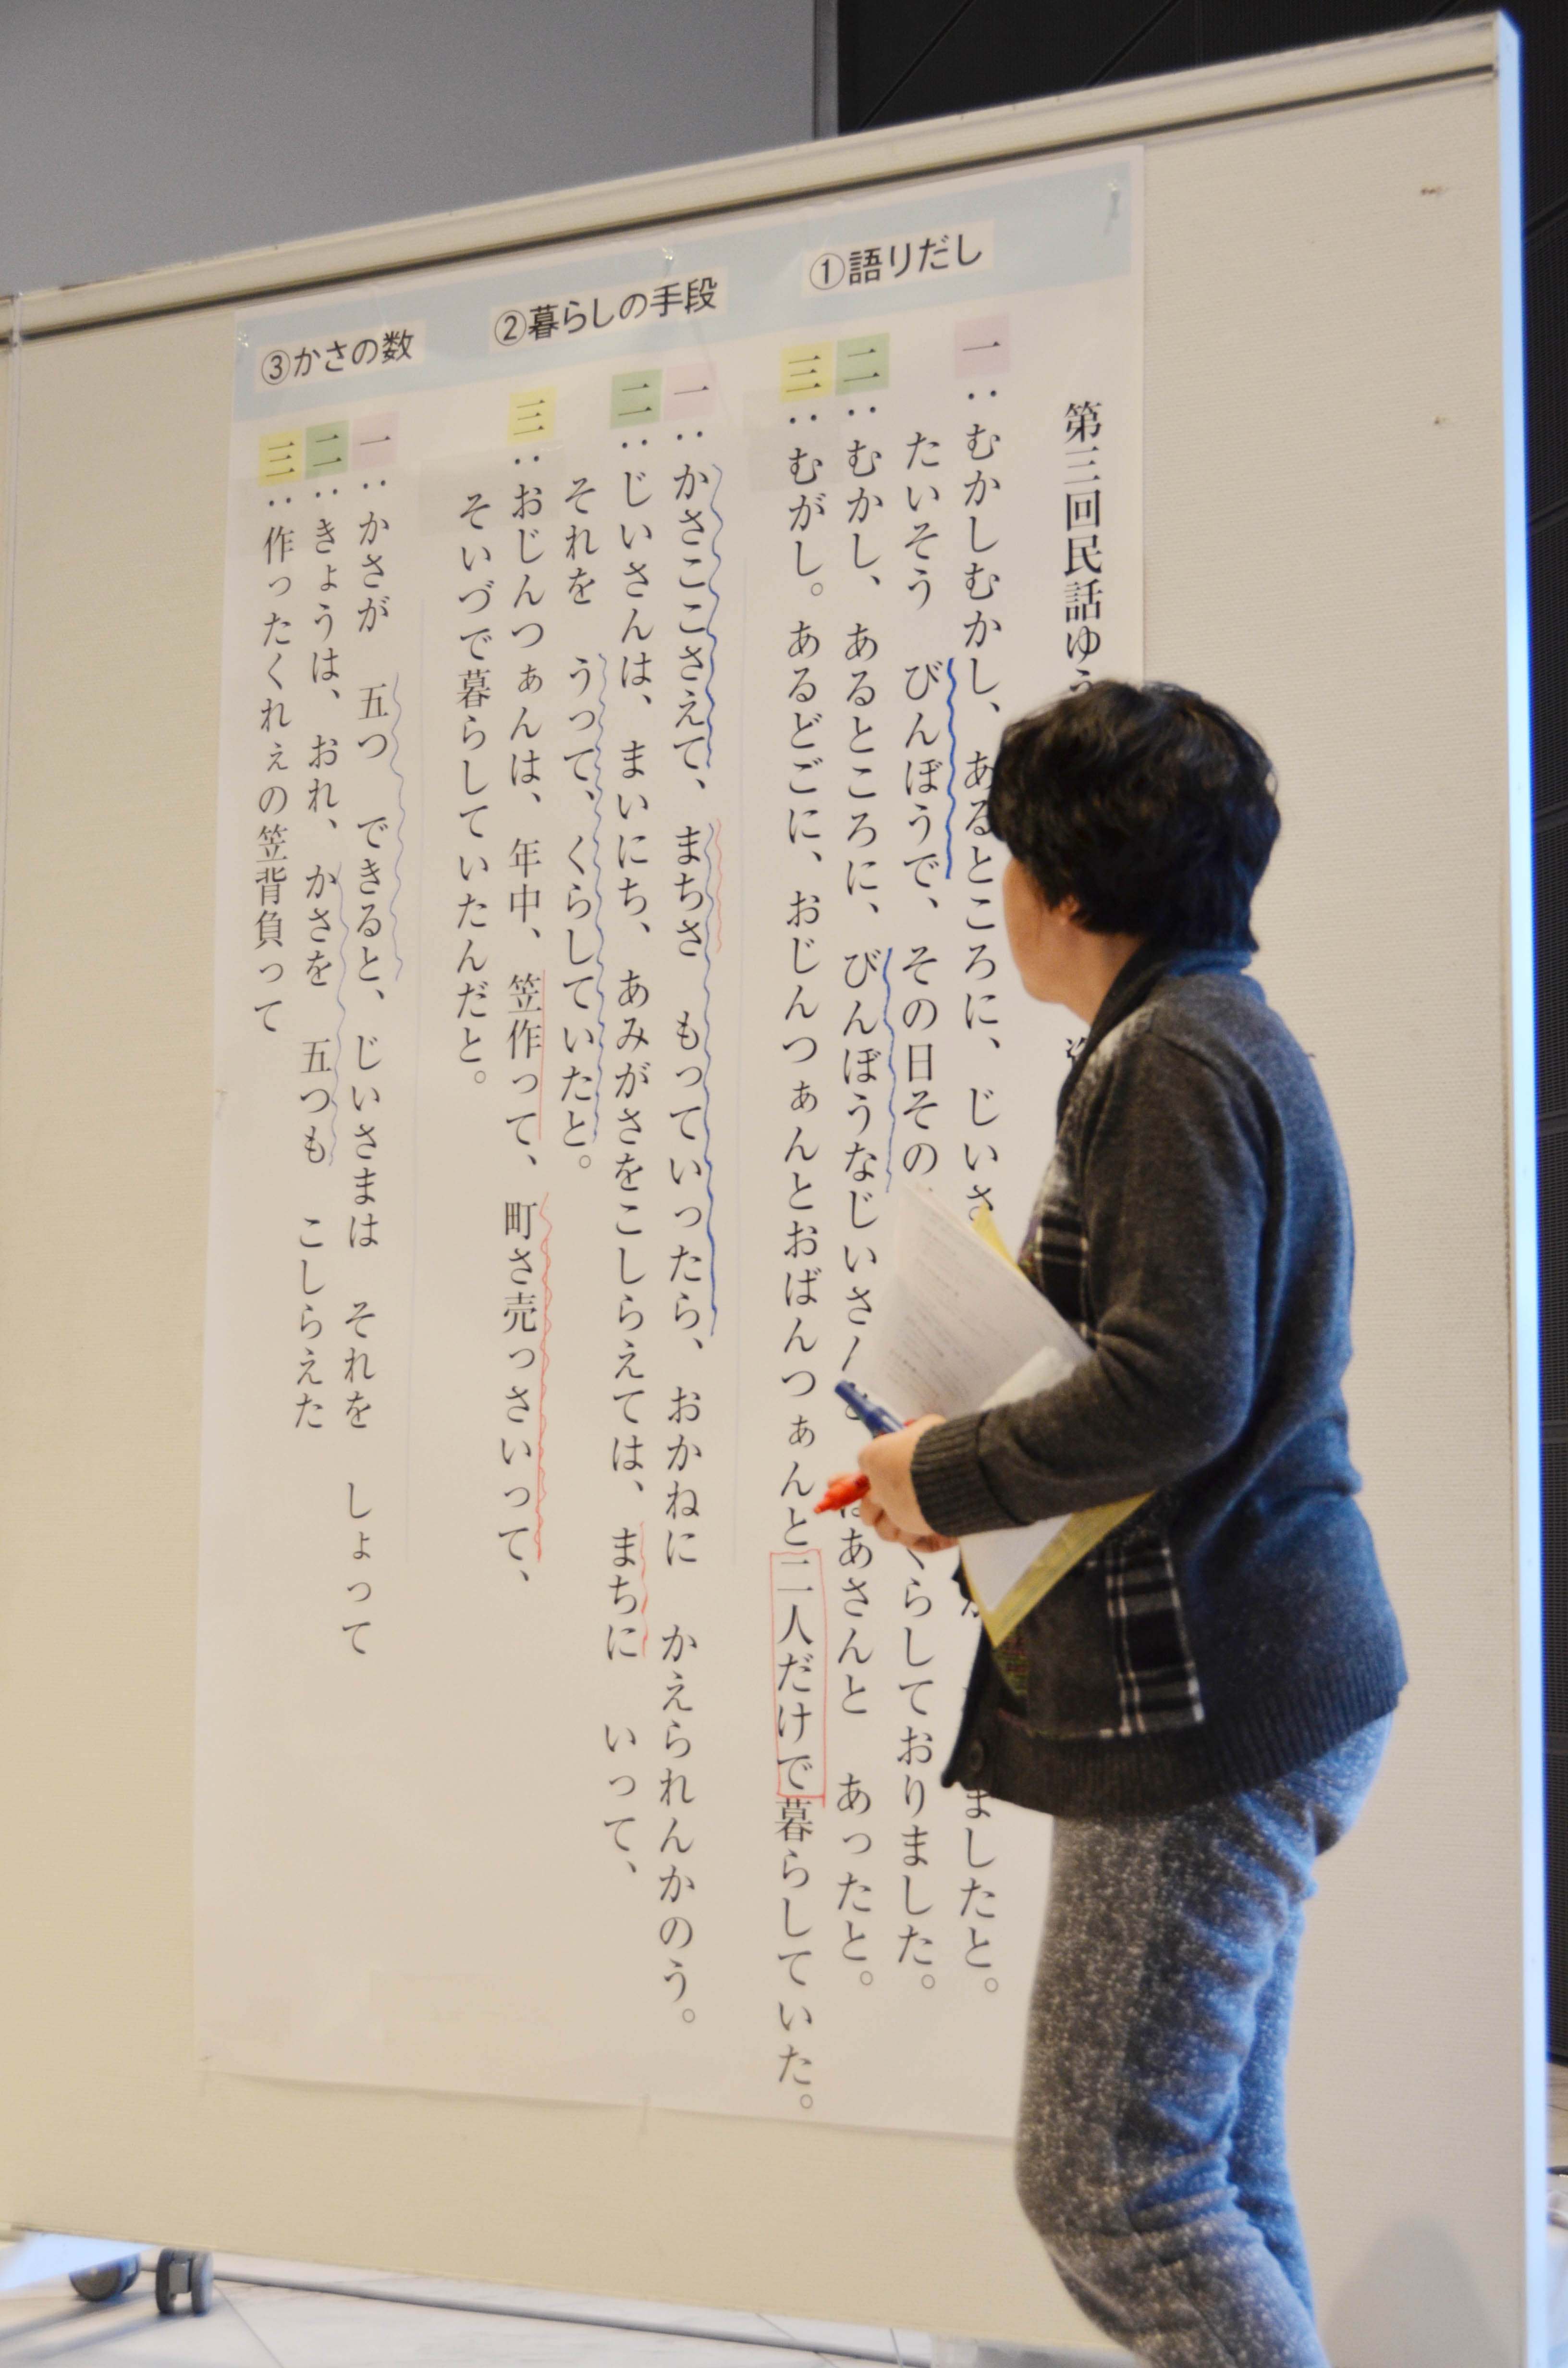 第三回民話ゆう
①語りだし
一：むかしむかし、あるところに、じいさ ましたと。
たいそう　びんぼうで、その日その くらしておりました。
二：むかし、あるところに、びんぼうなじいさん ばあさんと　あったと。
三：むがし。あるどごに、おじんつぁんとおばんつぁんと二人だけで暮らしていた。
②暮らしの手段
一：かさここさえて、まちさ　もっていったら、おかねに　かえられんかのう。
二：じいさんは、まいにち、あみがさをこしらえては、まちに　いって、
それを　うって、くらしていたと。
三：おじんつぁんは、年中、笠作って、町さ売っさいって、
そいづで暮らしていたんだと。
③かさの数
一：かさが　五つ　できると、じいさまは　それを　しょって
二：きょうは、おれ、かさを　五つも　こしらえた
三：作ったくれぇの笠背負って